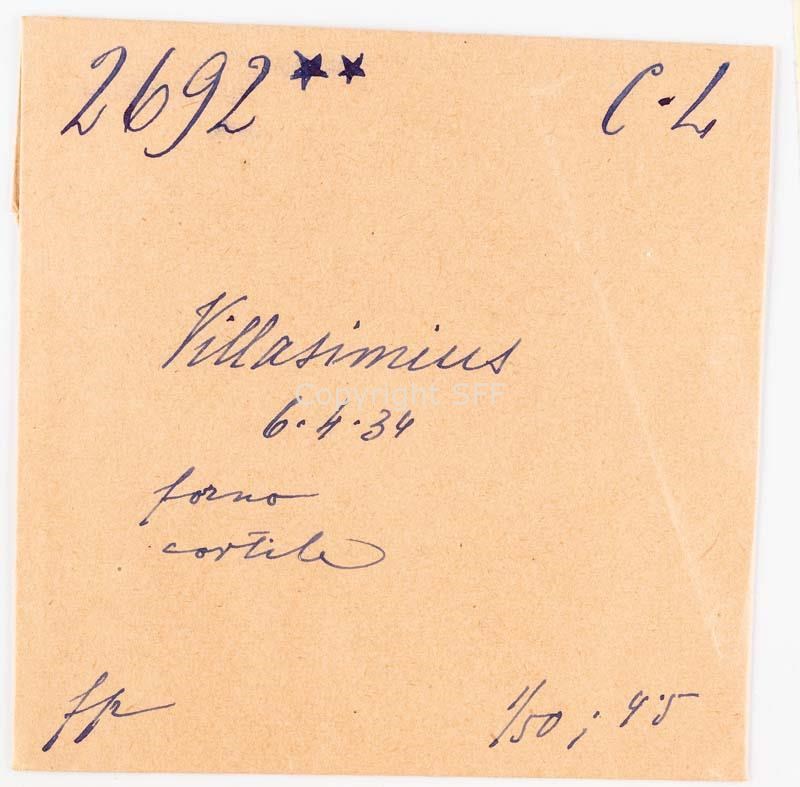 2692** C·L
Villasimius
Copyright SFF
6·4·34
forno
cortile
fp 1/50; 4·5